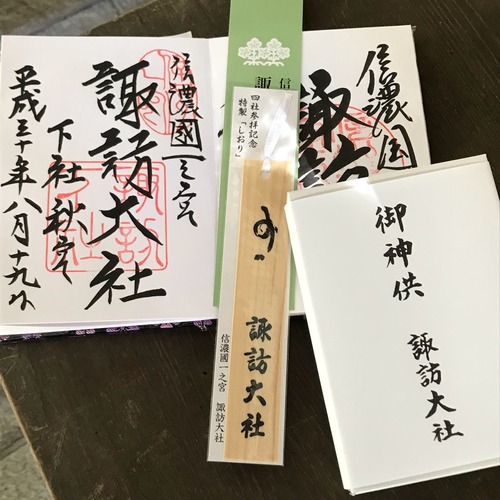 信濃國一之宮
諏訪大社
下社秋宮
平成三十年八月十九日
信
諏
四社参拝記念
特製「しおり」
諏訪大社
信濃國一之宮 諏訪大社
信濃國
諏訪
御神供
諏訪大社